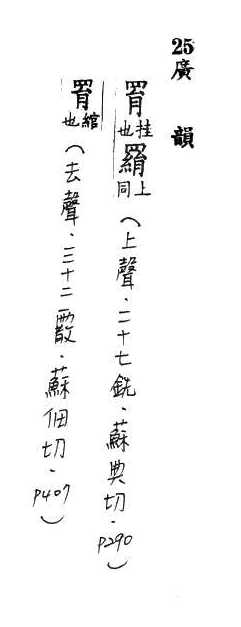 25 廣韻
罥挂也羂上同(上聲.二十七銑.蘇典切.P290)
罥綰也(去聲.三十二霰.蘇佃切.P407)